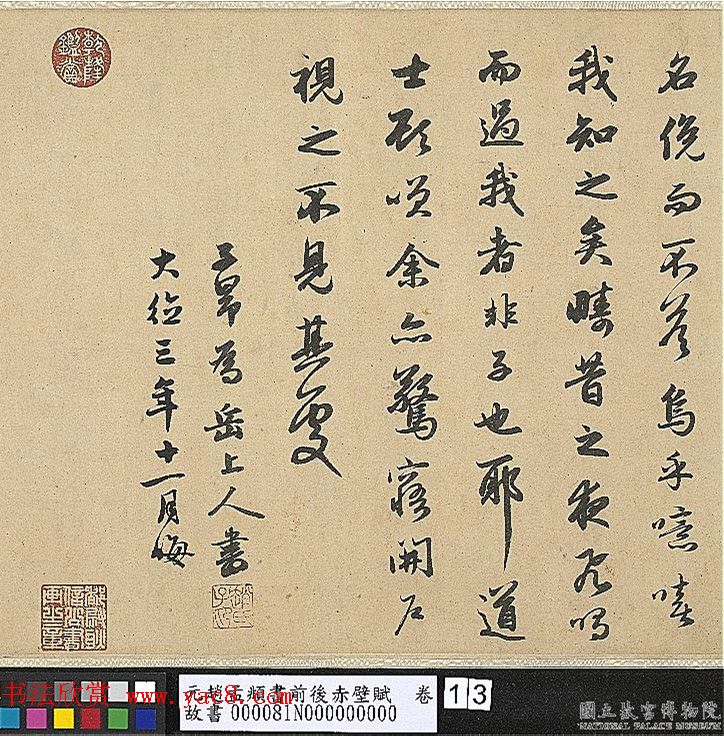 名俛而不答烏乎噫嘻
我知之矣疇昔之夜飛鳴
而過我者非子也耶道
士顧唉余亦驚寤開户
視之不見其處
子昂為岳上人書
大德三年十一月晦
乾隆鑑賞
趙氏子昂
书法欣赏 www.yac8.com
元趙孟頫書前後赤壁賦 卷
故書 000081N000000000
13
國立故宮博物院
NATIONAL PALACE MUSEUM